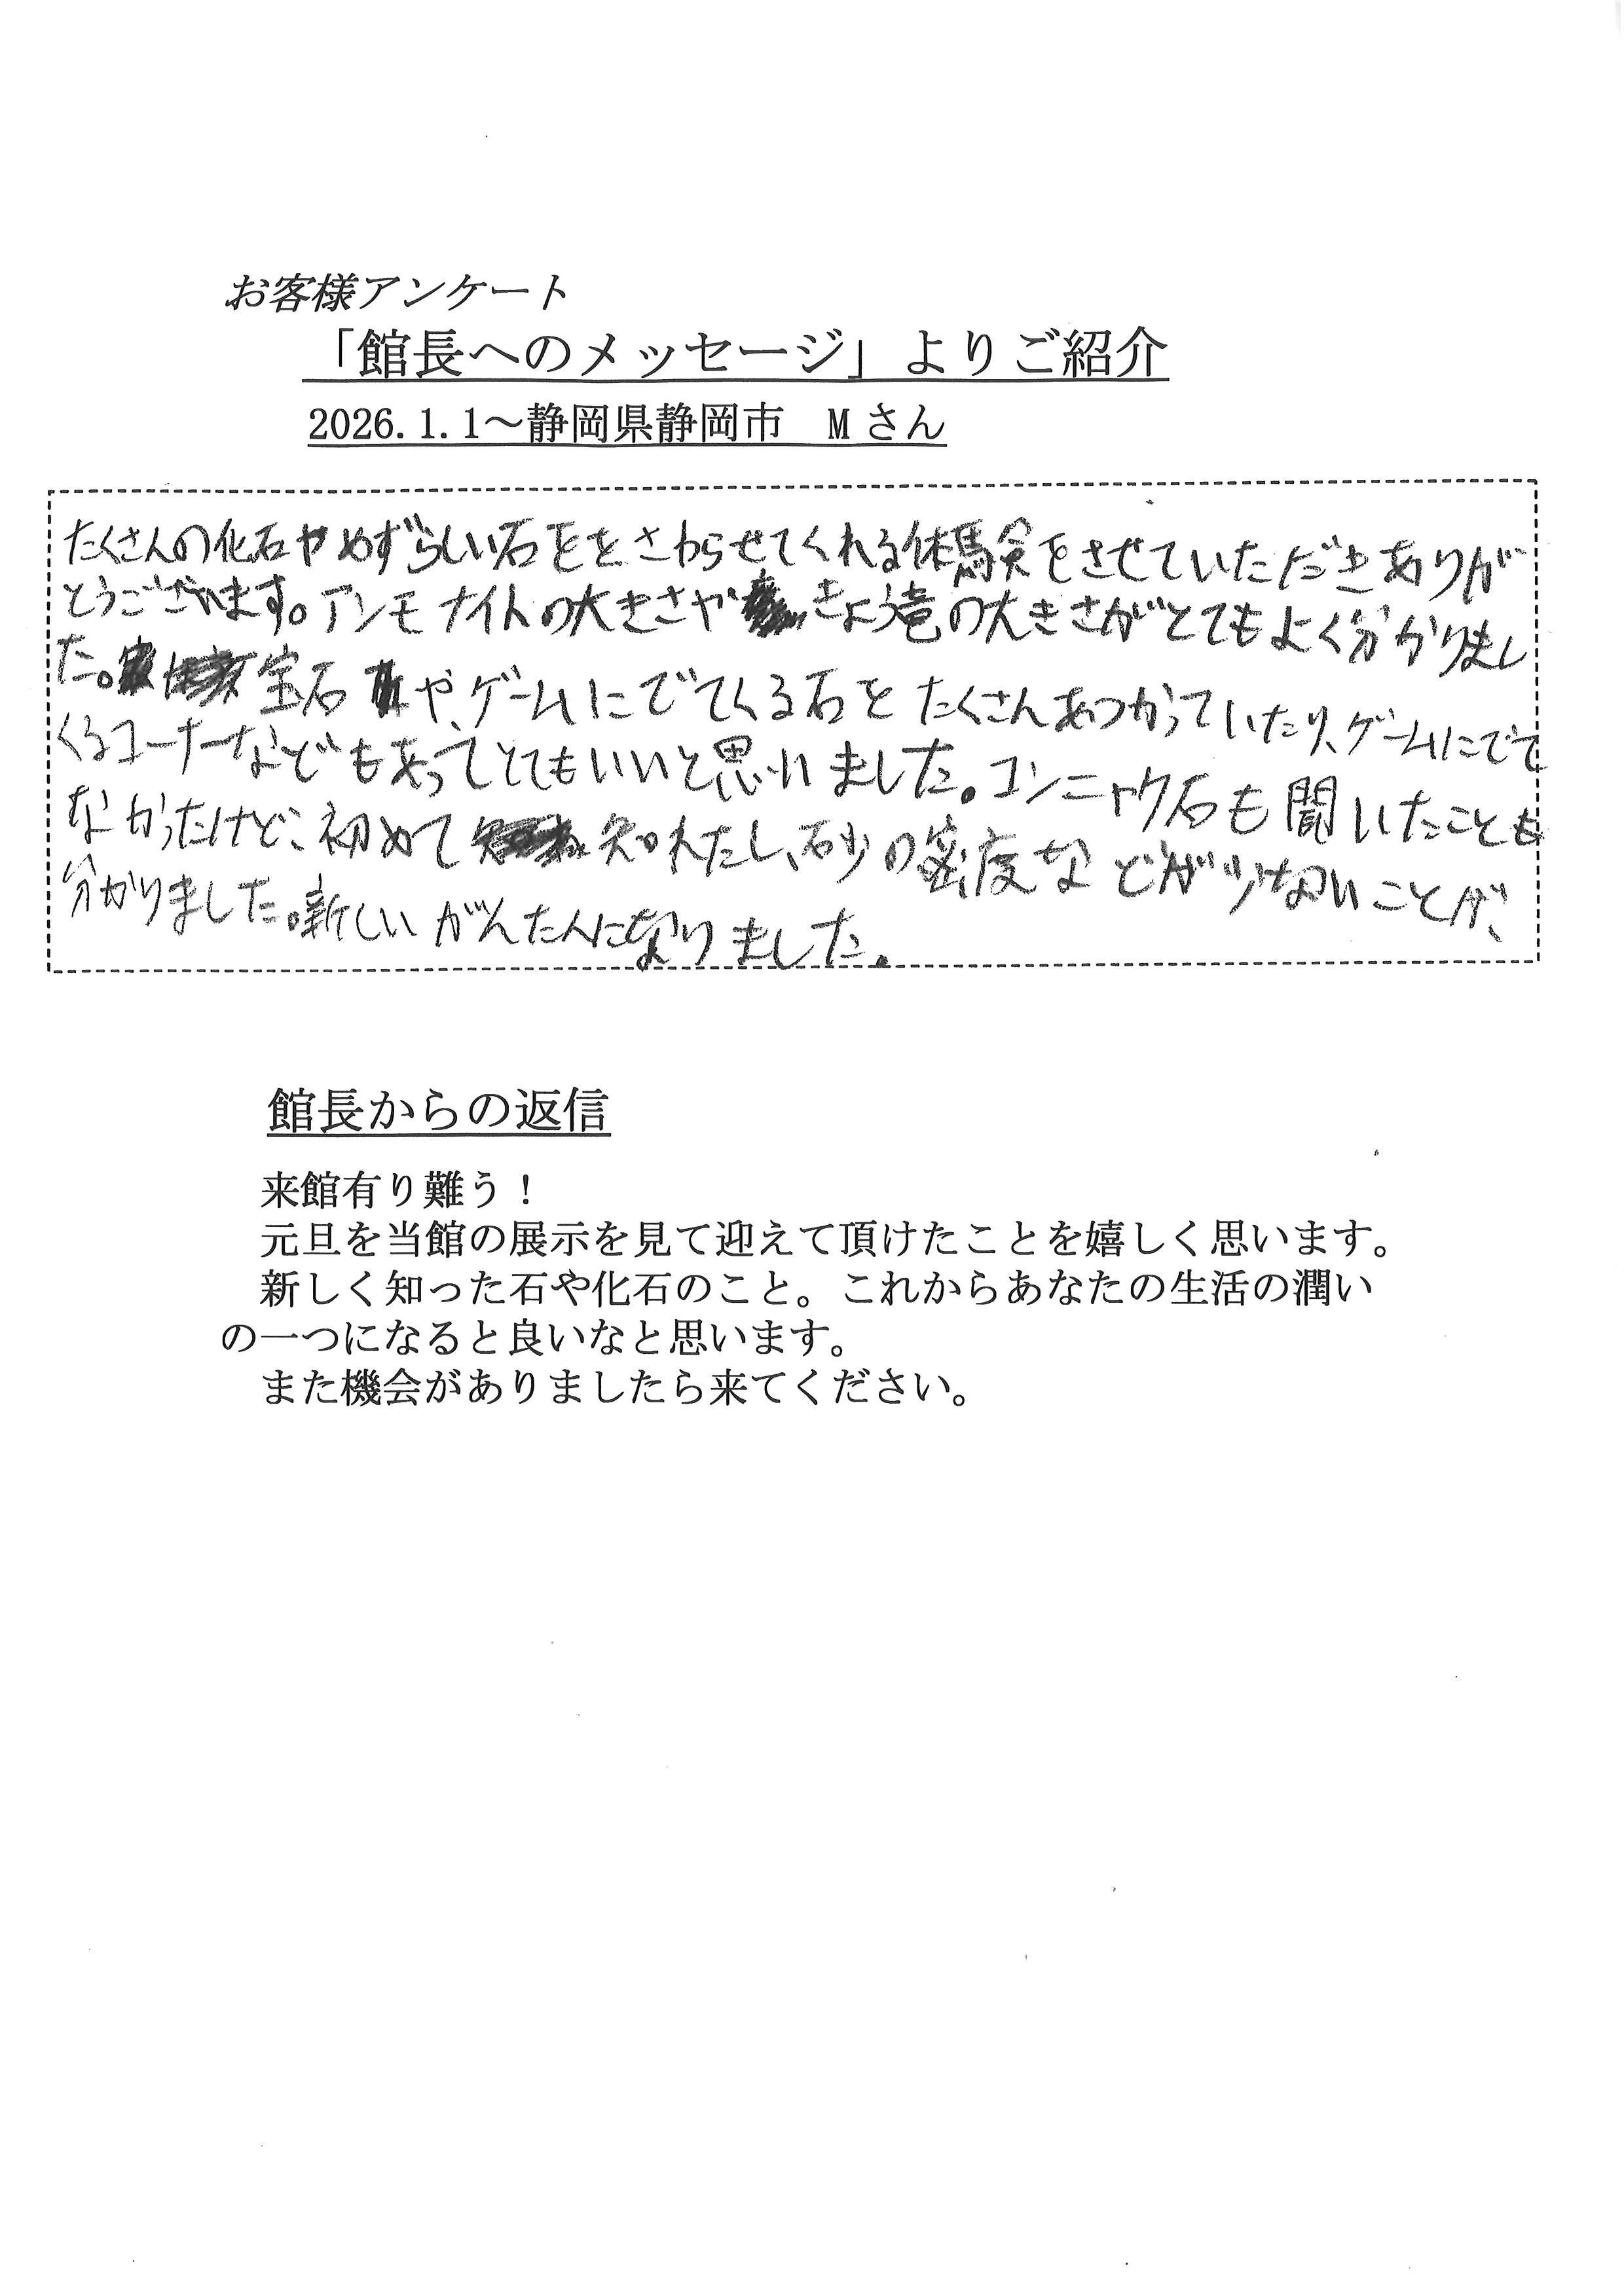 お客様アンケート
「館長へのメッセージ」よりご紹介
2026.1.1～静岡県静岡市　Mさん
たくさんの化石やめずらしい石をとさわらせてくれる体験をさせていただきありが
とうございます。アンモナイトの大きさやきょう竜の大きさがとてもよく分かりまし
た。宝石や、ゲームにでてくる石をたくさんあつかっていたり、ゲームにでて
くるコーナーなどもあってとてもいいと思いました。コンニャク石も聞いたことも
なかったけど、初めて知れたし、砂の密度などが少ないことが、
分かりました。新しいがんたんになりました。
館長からの返信
来館有り難う！
元旦を当館の展示を見て迎えて頂けたことを嬉しく思います。
新しく知った石や化石のこと。これからあなたの生活の潤い
の一つになると良いなと思います。
また機会がありましたら来てください。